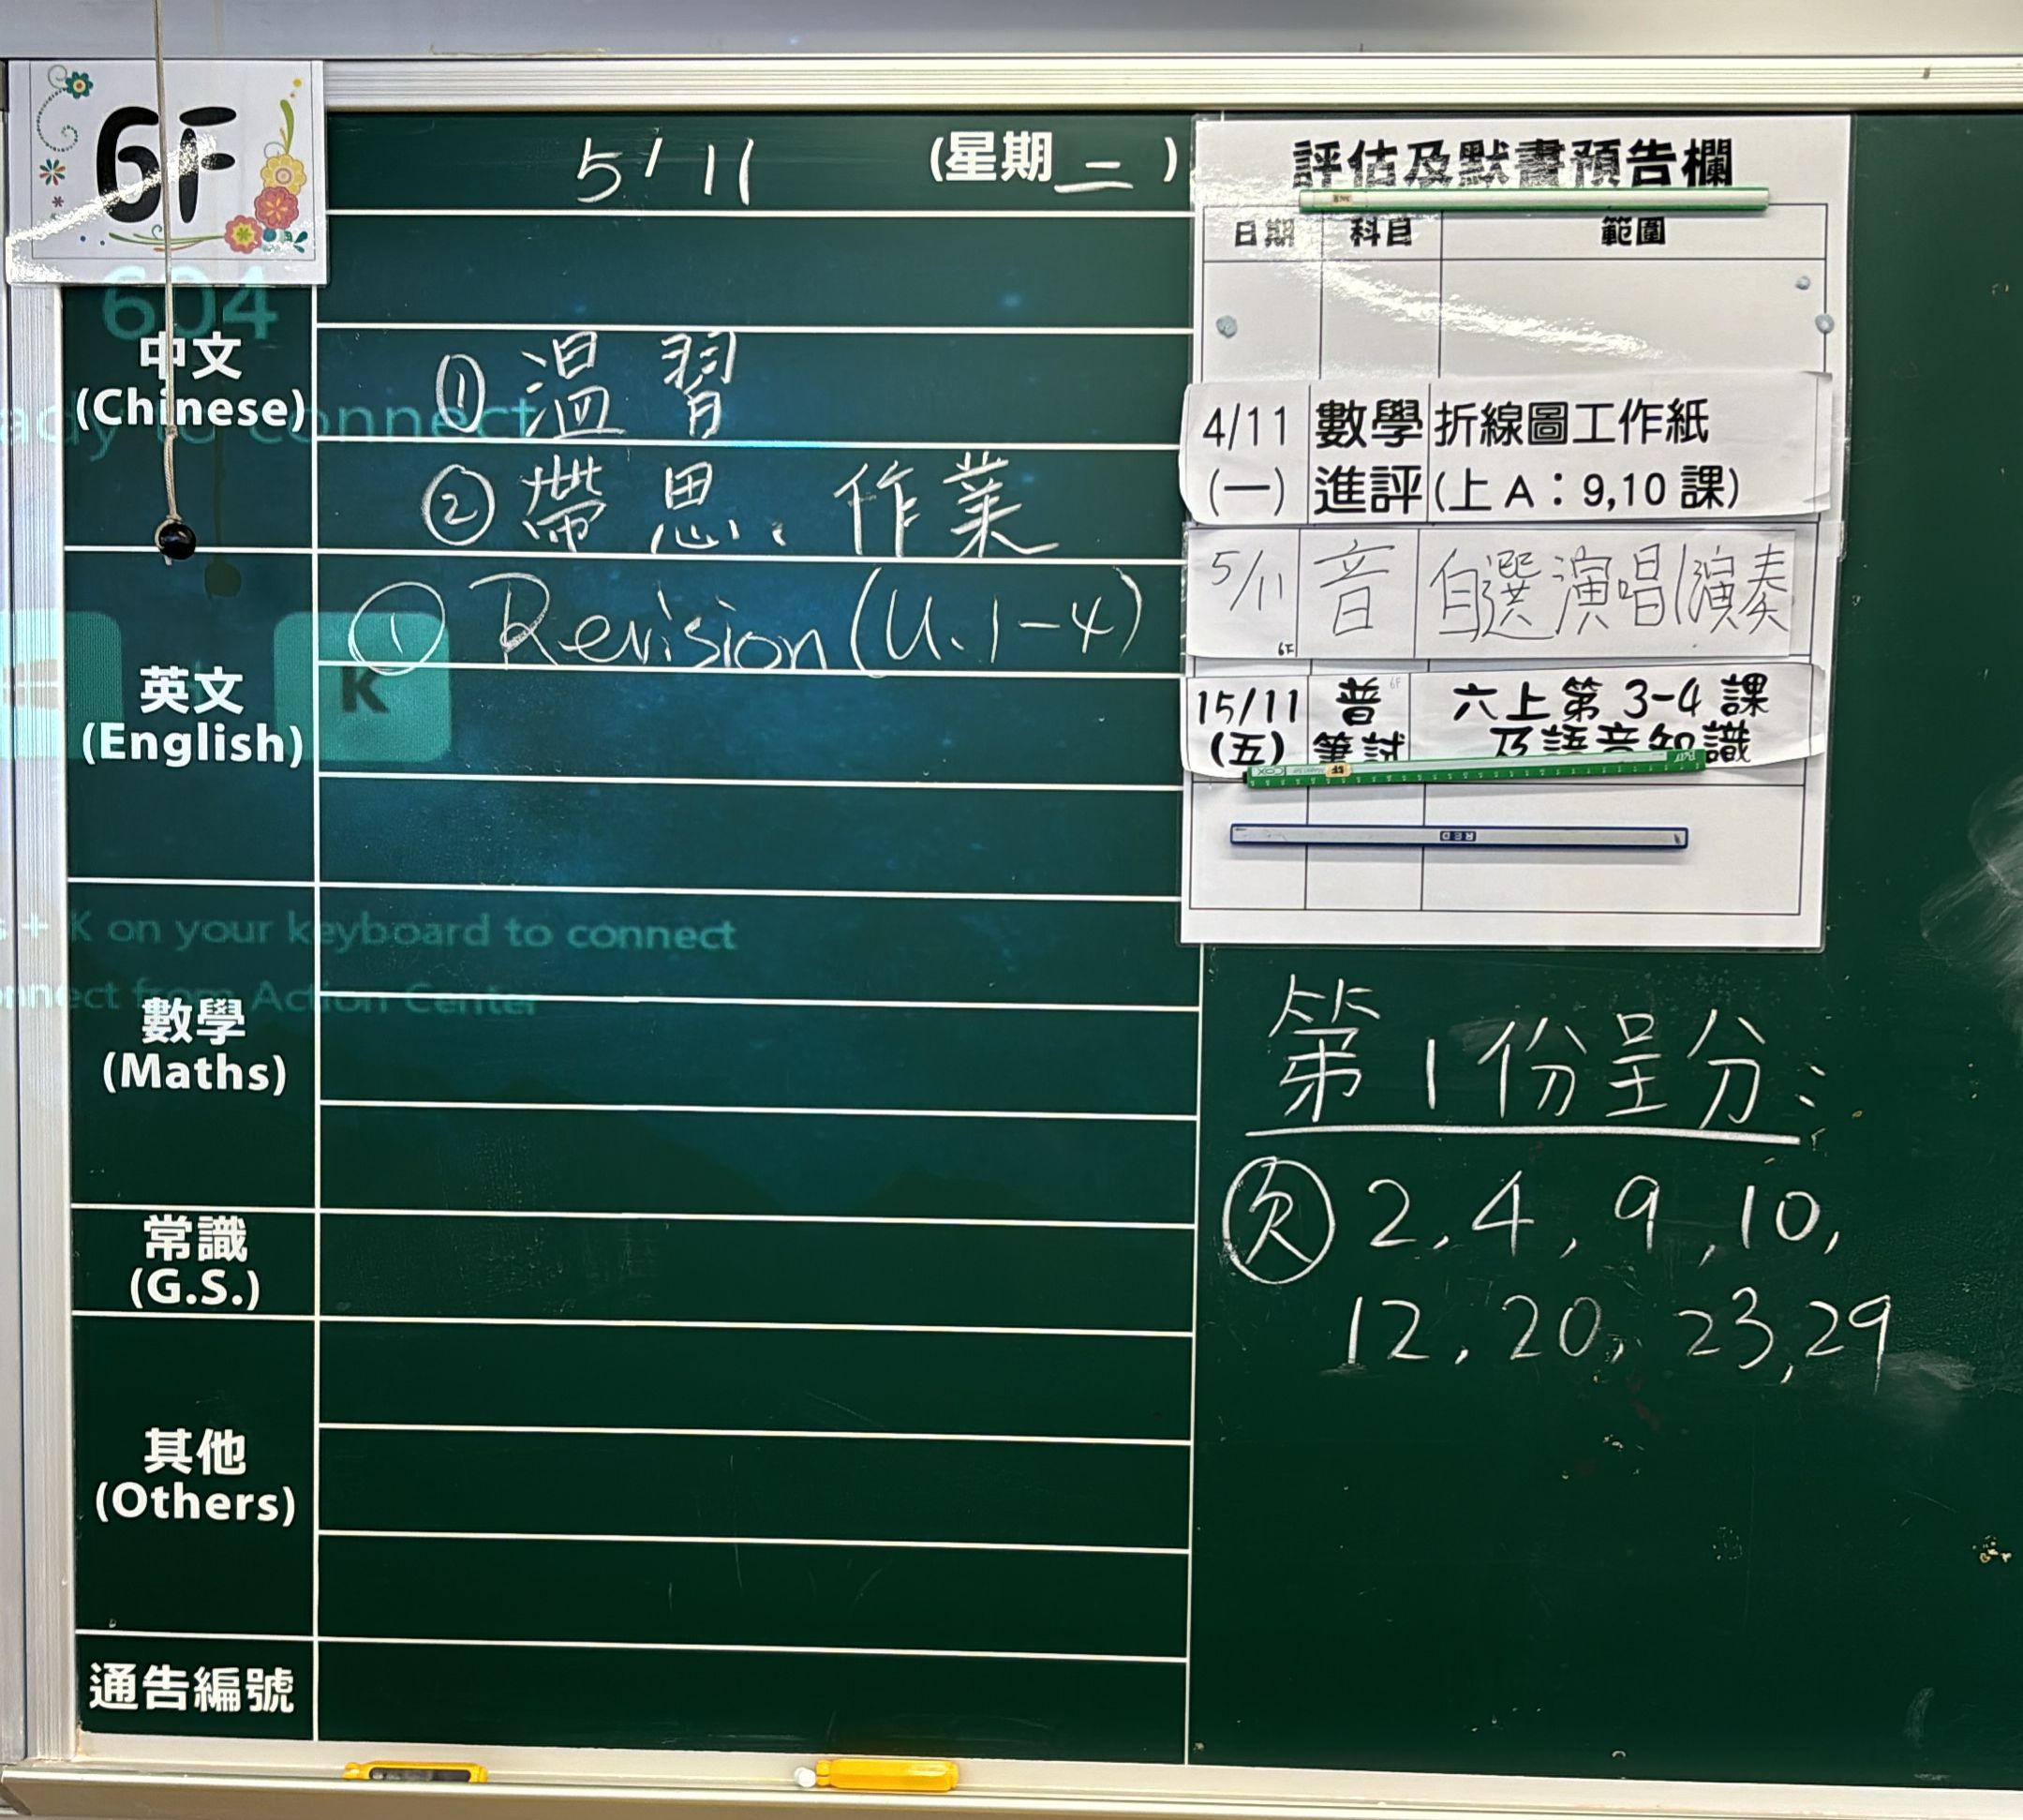 6F
5/11 (星期二)
604
中文
(Chinese)
①溫習
②帶思、作業
ady to connect
英文
(English)
①Revision(U.1-4)
K
s + K on your keyboard to connect
nnect from Action Center
數學
(Maths)
常識
(G.S.)
其他
(Others)
通告編號
評估及默書預告欄
日期 科目 範圍
4/11 數學 折線圖工作紙
(一) 進評 (上A：9,10課)
5/11 音 自選演唱/演奏
6F
15/11 普 6F 六上第3-4課
(五) 筆試 及語音知識
BIC
COX
RED
第1份呈分：
欠 2, 4, 9, 10,
12, 20, 23, 29